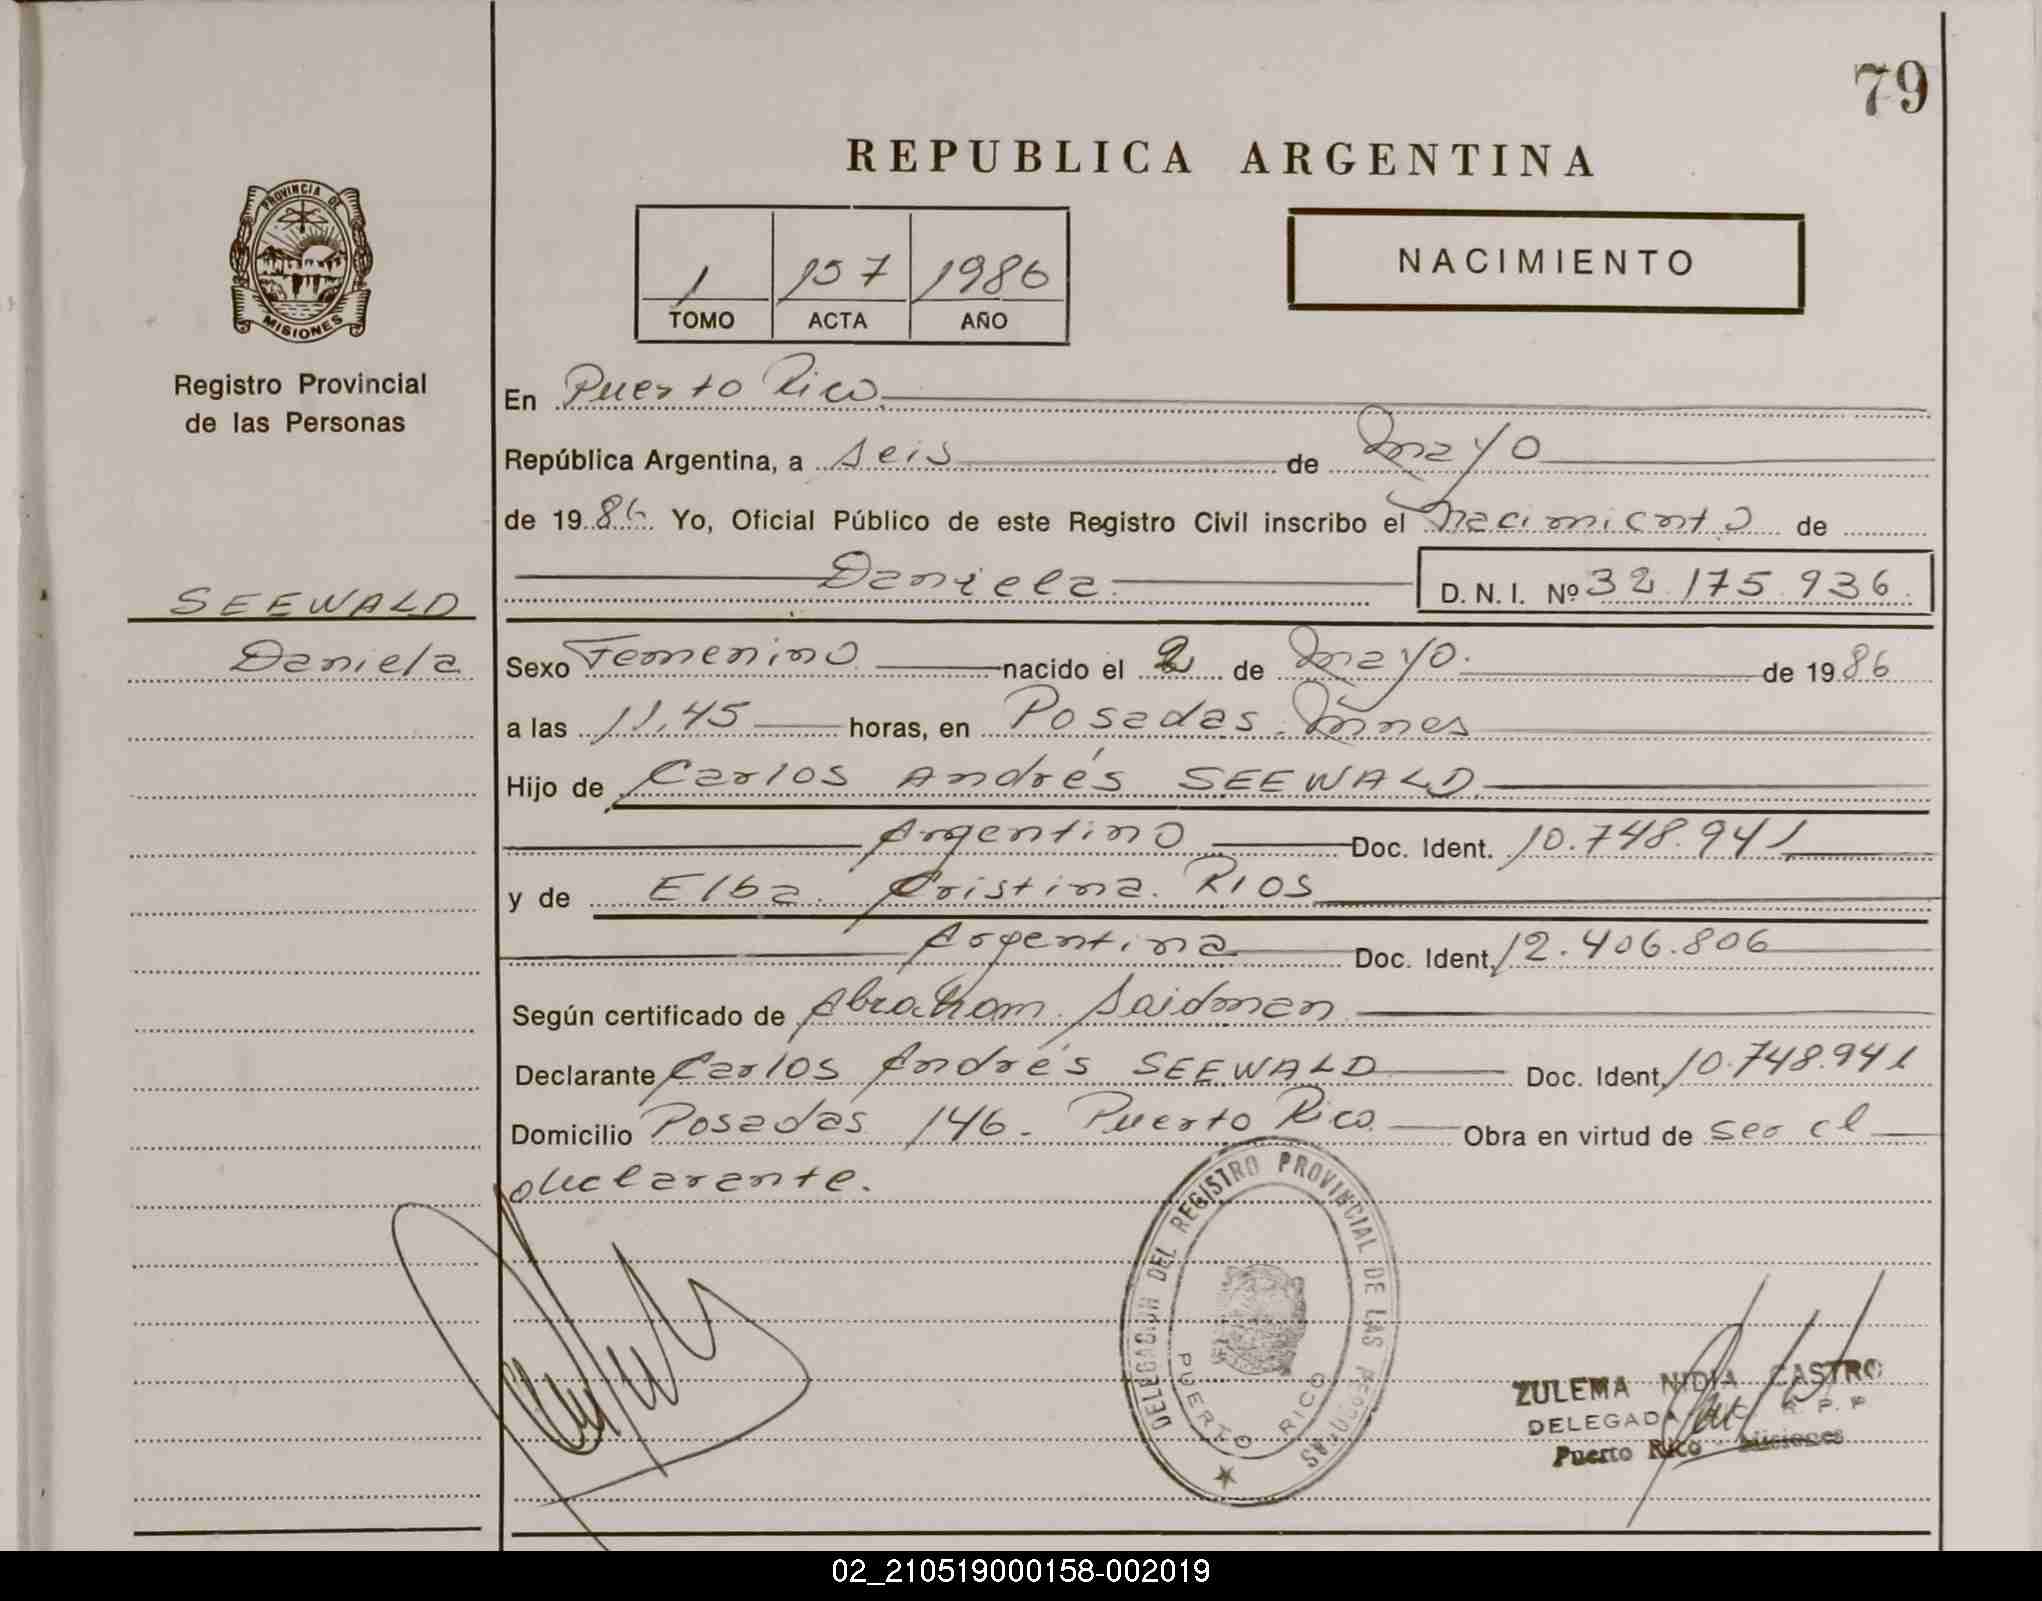 79
REPUBLICA ARGENTINA
PROVINCIA DE
MISIONES
Registro Provincial
de las Personas
1 157 1986
TOMO ACTA AÑO
NACIMIENTO
En Puerto Rico.
República Argentina, a seis de mayo
de 1986 Yo, Oficial Público de este Registro Civil inscribo el nacimiento de
Daniela D. N. I. Nº 32.175.936.
SEEWALD
Daniela
Sexo Femenino nacido el 2 de mayo. de 1986
a las 11,45 horas, en Posadas. Mnes
Hijo de Carlos Andrés SEEWALD
Argentino Doc. Ident. 10.748.941
y de Elba Cristina RIOS
Argentina Doc. Ident. 12.406.806
Según certificado de Abraham Saidman
Declarante Carlos Andrés SEEWALD Doc. Ident. 10.748.941
Domicilio Posadas 146. Puerto Rico Obra en virtud de ser el
declarante.
DELEGACION DEL REGISTRO PROVINCIAL DE LAS PERSONAS
PUERTO RICO
ZULEMA NIDIA CASTRO
DELEGADA R. P. P
Puerto Rico - Misiones
02_210519000158-002019